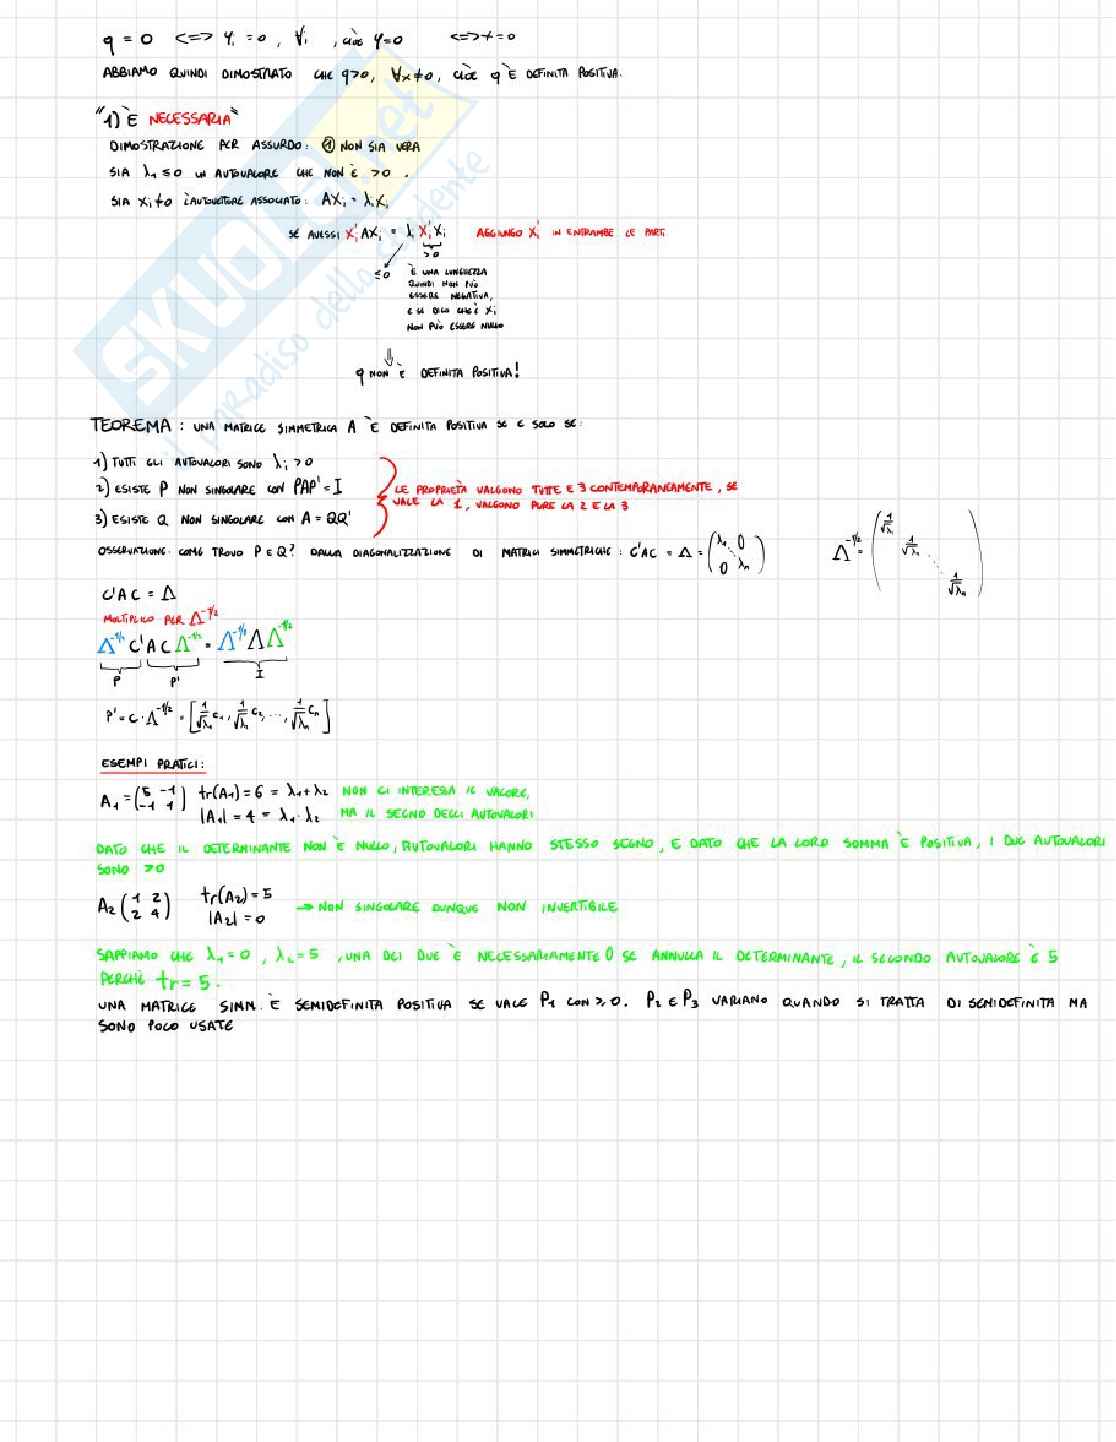 q = 0 <=> Yᵢ = 0, ∀ᵢ, cioè Y=0 <=> x=0
ABBIAMO QUINDI DIMOSTRATO CHE q>0, ∀x≠0, cioè q È DEFINITA POSITIVA.
"1) È NECESSARIA"
DIMOSTRAZIONE PER ASSURDO: ① NON SIA VERA
SIA λ₁ ≤ 0 UN AUTOVALORE CHE NON È >0.
SIA Xᵢ≠0 L'AUTOVETTORE ASSOCIATO: AXᵢ = λᵢXᵢ
SE AVESSI Xᵢ'AXᵢ = λᵢ Xᵢ'Xᵢ AGGIUNGO Xᵢ' IN ENTRAMBE LE PARTI
>0
≤0
È UNA LUNGHEZZA
QUINDI NON PUÒ
ESSERE NEGATIVA,
E SI DICO CHE È Xᵢ
NON PUÒ ESSERE NULLO
⇓
q NON È DEFINITA POSITIVA!
TEOREMA: UNA MATRICE SIMMETRICA A È DEFINITA POSITIVA SE E SOLO SE:
1) TUTTI GLI AUTOVALORI SONO λᵢ > 0
2) ESISTE P NON SINGOLARE CON PAP' = I
3) ESISTE Q NON SINGOLARE CON A = QQ'
LE PROPRIETÀ VALGONO TUTTE E 3 CONTEMPORANEAMENTE, SE
VALE LA 1, VALGONO PURE LA 2 E LA 3
OSSERVAZIONE: COME TROVO P E Q? DALLA DIAGONALIZZAZIONE DI MATRICI SIMMETRICHE: C'AC = Δ = (λ₁ 0 ⋱ 0 λₙ) Δ^-1/2 = (1/√λ₁ 1/√λ₁ ⋱ 1/√λₙ)
C'AC = Δ
MOLTIPLICO PER Δ^-1/2
Δ^-1/2 C'AC Δ^-1/2 = Δ^-1/2 Δ Δ^-1/2
P P' I
P' = C · Δ^-1/2 = [1/√λ₁ C₁, 1/√λ₂ C₂, ..., 1/√λₙ Cₙ]
ESEMPI PRATICI:
A₁ = (5 -1 -1 1) tr(A₁) = 6 = λ₁+λ₂ NON CI INTERESSA IL VALORE,
|A₁| = 4 = λ₁·λ₂ MA IL SEGNO DEGLI AUTOVALORI
DATO CHE IL DETERMINANTE NON È NULLO, AUTOVALORI HANNO STESSO SEGNO, E DATO CHE LA LORO SOMMA È POSITIVA, I DUE AUTOVALORI
SONO >0
A₂ (1 2 2 4) tr(A₂) = 5
|A₂| = 0 → NON SINGOLARE DUNQUE NON INVERTIBILE
SAPPIAMO CHE λ₁=0, λ₂=5, UNA DEI DUE È NECESSARIAMENTE 0 SE ANNULLA IL DETERMINANTE, IL SECONDO AUTOVALORE È 5
PERCHÈ tr = 5.
UNA MATRICE SIMM. È SEMIDEFINITA POSITIVA SE VALE P₁ CON ≥ 0. P₂ E P₃ VARIANO QUANDO SI TRATTA DI SEMIDEFINITA MA
SONO POCO USATE
SKUOLA.net
il paradiso dello studente